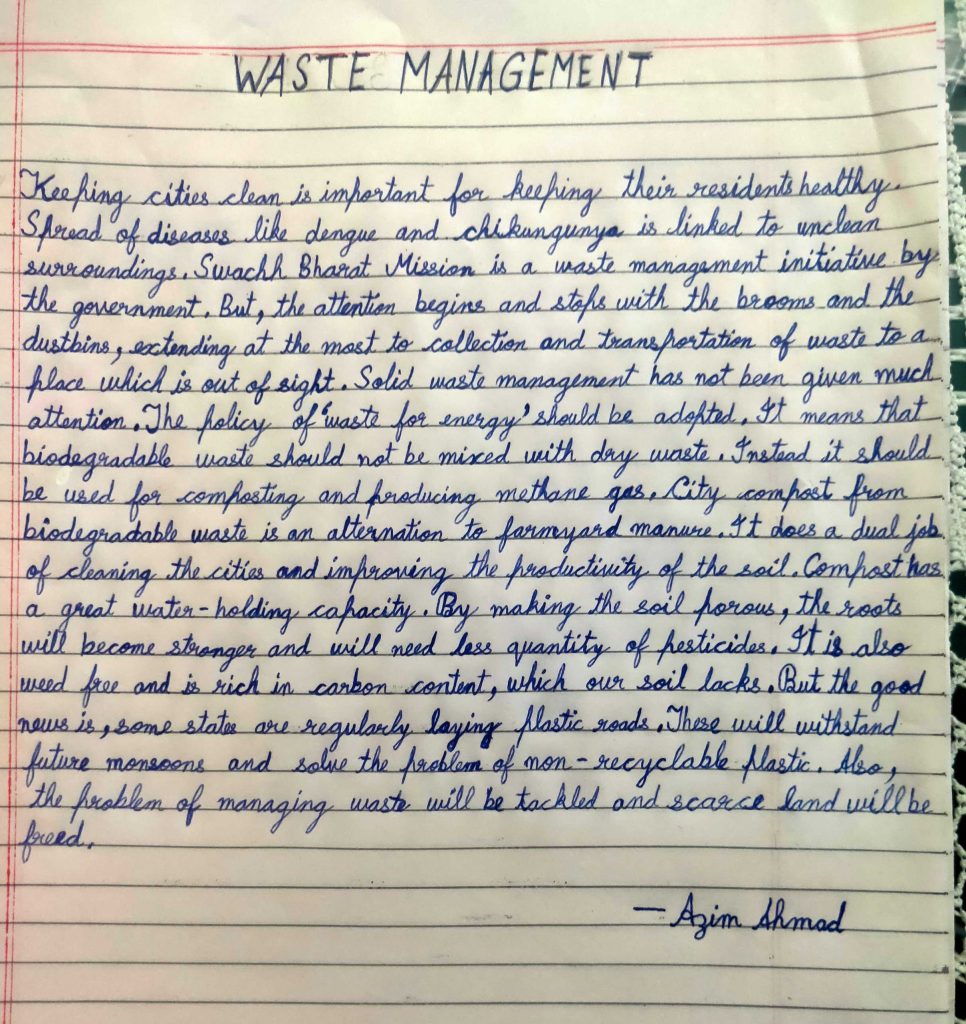 WASTE MANAGEMENT
Keeping cities clean is important for keeping their residents healthy.
Spread of diseases like dengue and chikungunya is linked to unclean
surroundings. Swachh Bharat Mission is a waste management initiative by
the government. But, the attention begins and stops with the brooms and the
dustbins, extending at the most to collection and transportation of waste to a
place which is out of sight. Solid waste management has not been given much
attention. The policy of 'waste for energy' should be adopted. It means that
biodegradable waste should not be mixed with dry waste. Instead it should
be used for composting and producing methane gas. City compost from
biodegradable waste is an alternation to farmyard manure. It does a dual job
of cleaning the cities and improving the productivity of the soil. Compost has
a great water-holding capacity. By making the soil porous, the roots
will become stronger and will need less quantity of pesticides. It is also
weed free and is rich in carbon content, which our soil lacks. But the good
news is, some states are regularly laying plastic roads. These will withstand
future monsoons and solve the problem of non-recyclable plastic. Also,
the problem of managing waste will be tackled and scarce land will be
freed.
— Azim Ahmad